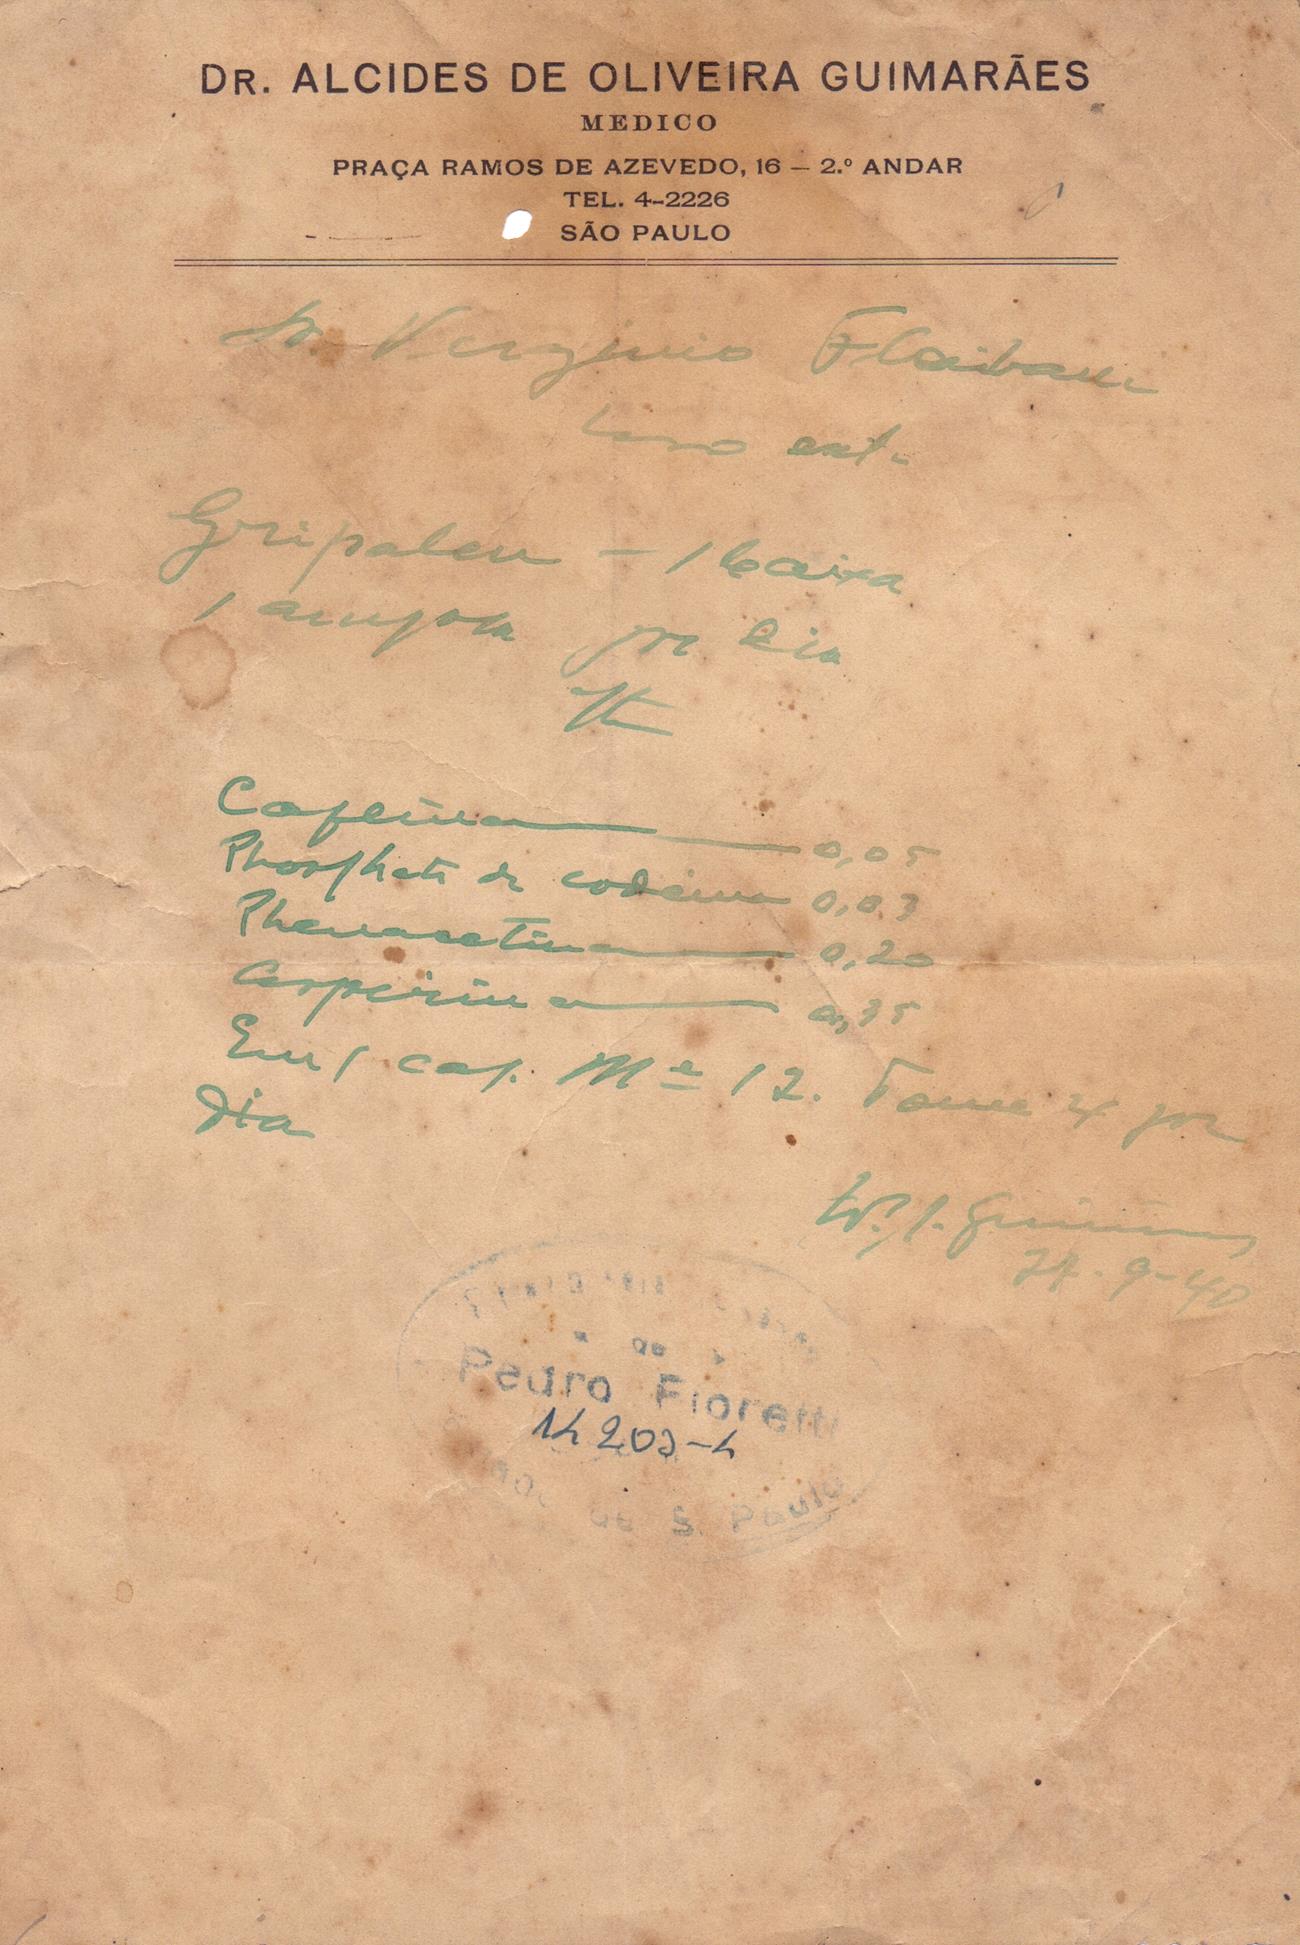 DR. ALCIDES DE OLIVEIRA GUIMARÃES
MEDICO
PRAÇA RAMOS DE AZEVEDO, 16 — 2.º ANDAR
TEL. 4-2226
SÃO PAULO
Sr. Verginio Flaibam
Uso ext.
Gripalen - 1 caixa
1 ampola por dia
It
Cafeina 0,05
Phosphato de codeina 0,03
Phenacetina 0,20
Aspirina 0,35
Em 1 cap. Me 12. Tome 4 por
dia
Guimarães
24-9-40
de
Pedro Fioretti
14203-4
de S. Paulo